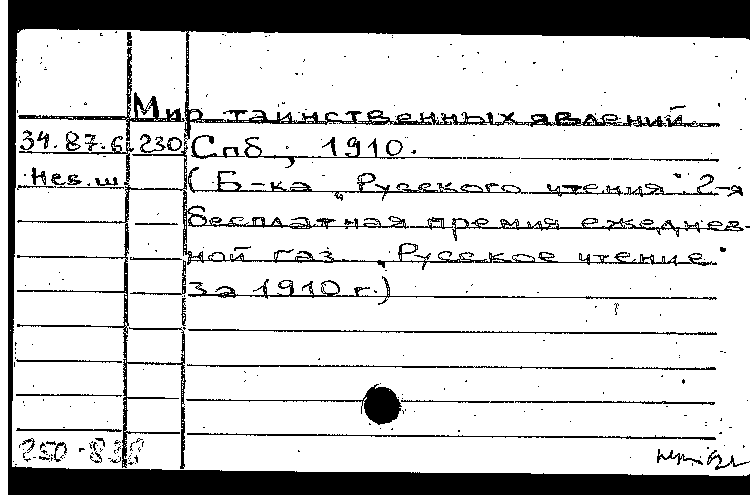 Мир таинственных явлений
34.87.6.230 Спб, 1910.
Нев.ш. (Б-ка „Русского чтения". 2-я
бесплатная премия ежеднев-
ной газ. „Русское чтение"
за 1910 г.)
250-838